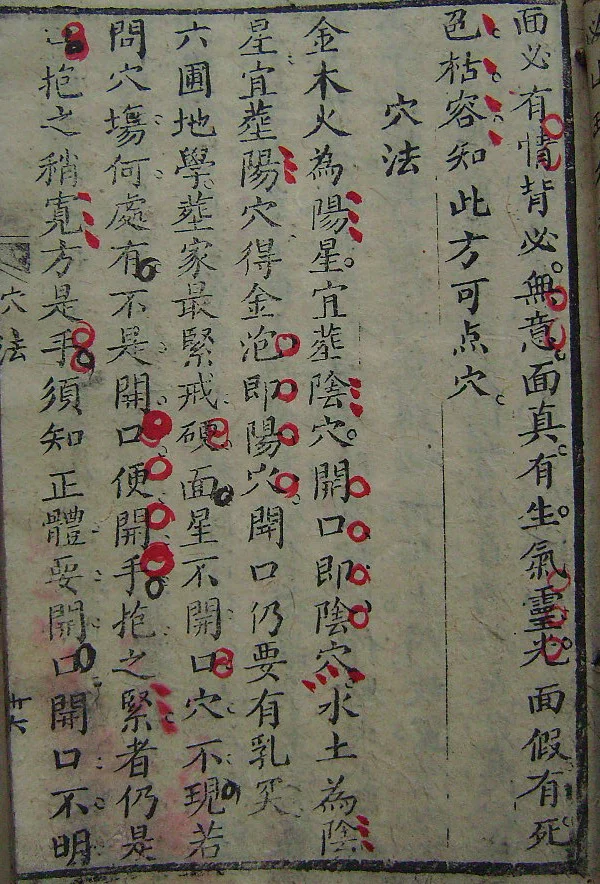 面必有情背必無意面真有生氣靈光面假有死
色枯容知此方可点穴
穴法
金木火為陽星宜塟陰穴開口即陰穴水土為陰
星宜塟陽穴得金泡即陽穴開口仍要有乳突
六圃地學塟家最緊戒硬面星不開口穴不現若
問穴塲何處有不是開口便開手抱之緊者仍是
抱之稍寬方是手須知正體要開口開口不明
穴法
廿六